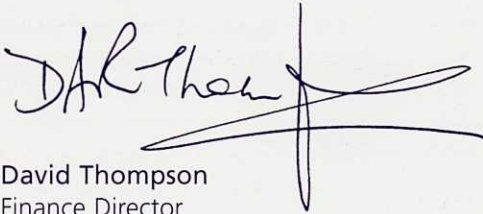 DAR Thom
David Thompson
Finance Director